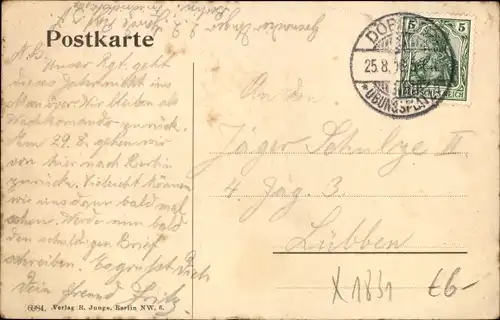 Postkarte
DÖB
25.8.
ÜBUNGSPLATZ
5
5
REICH
N.B. Unser Rgt. geht
dieses Jahr nicht ins
Manöver. Wir bleiben als
Wachkommando zurück.
Am 29.8. gehen wir
von hier nach Berlin
zurück. Vielleicht können
wir uns dann bald mal
sehen. Werde nun bald
den schuldigen Brief
schreiben. Es grüsst Dich
Dein Freund Fritz
An den
Jäger Schulze II
4. Jäg. 3.
Lübben
X 1831 £6-
6984. Verlag R. Junge, Berlin NW. 6.